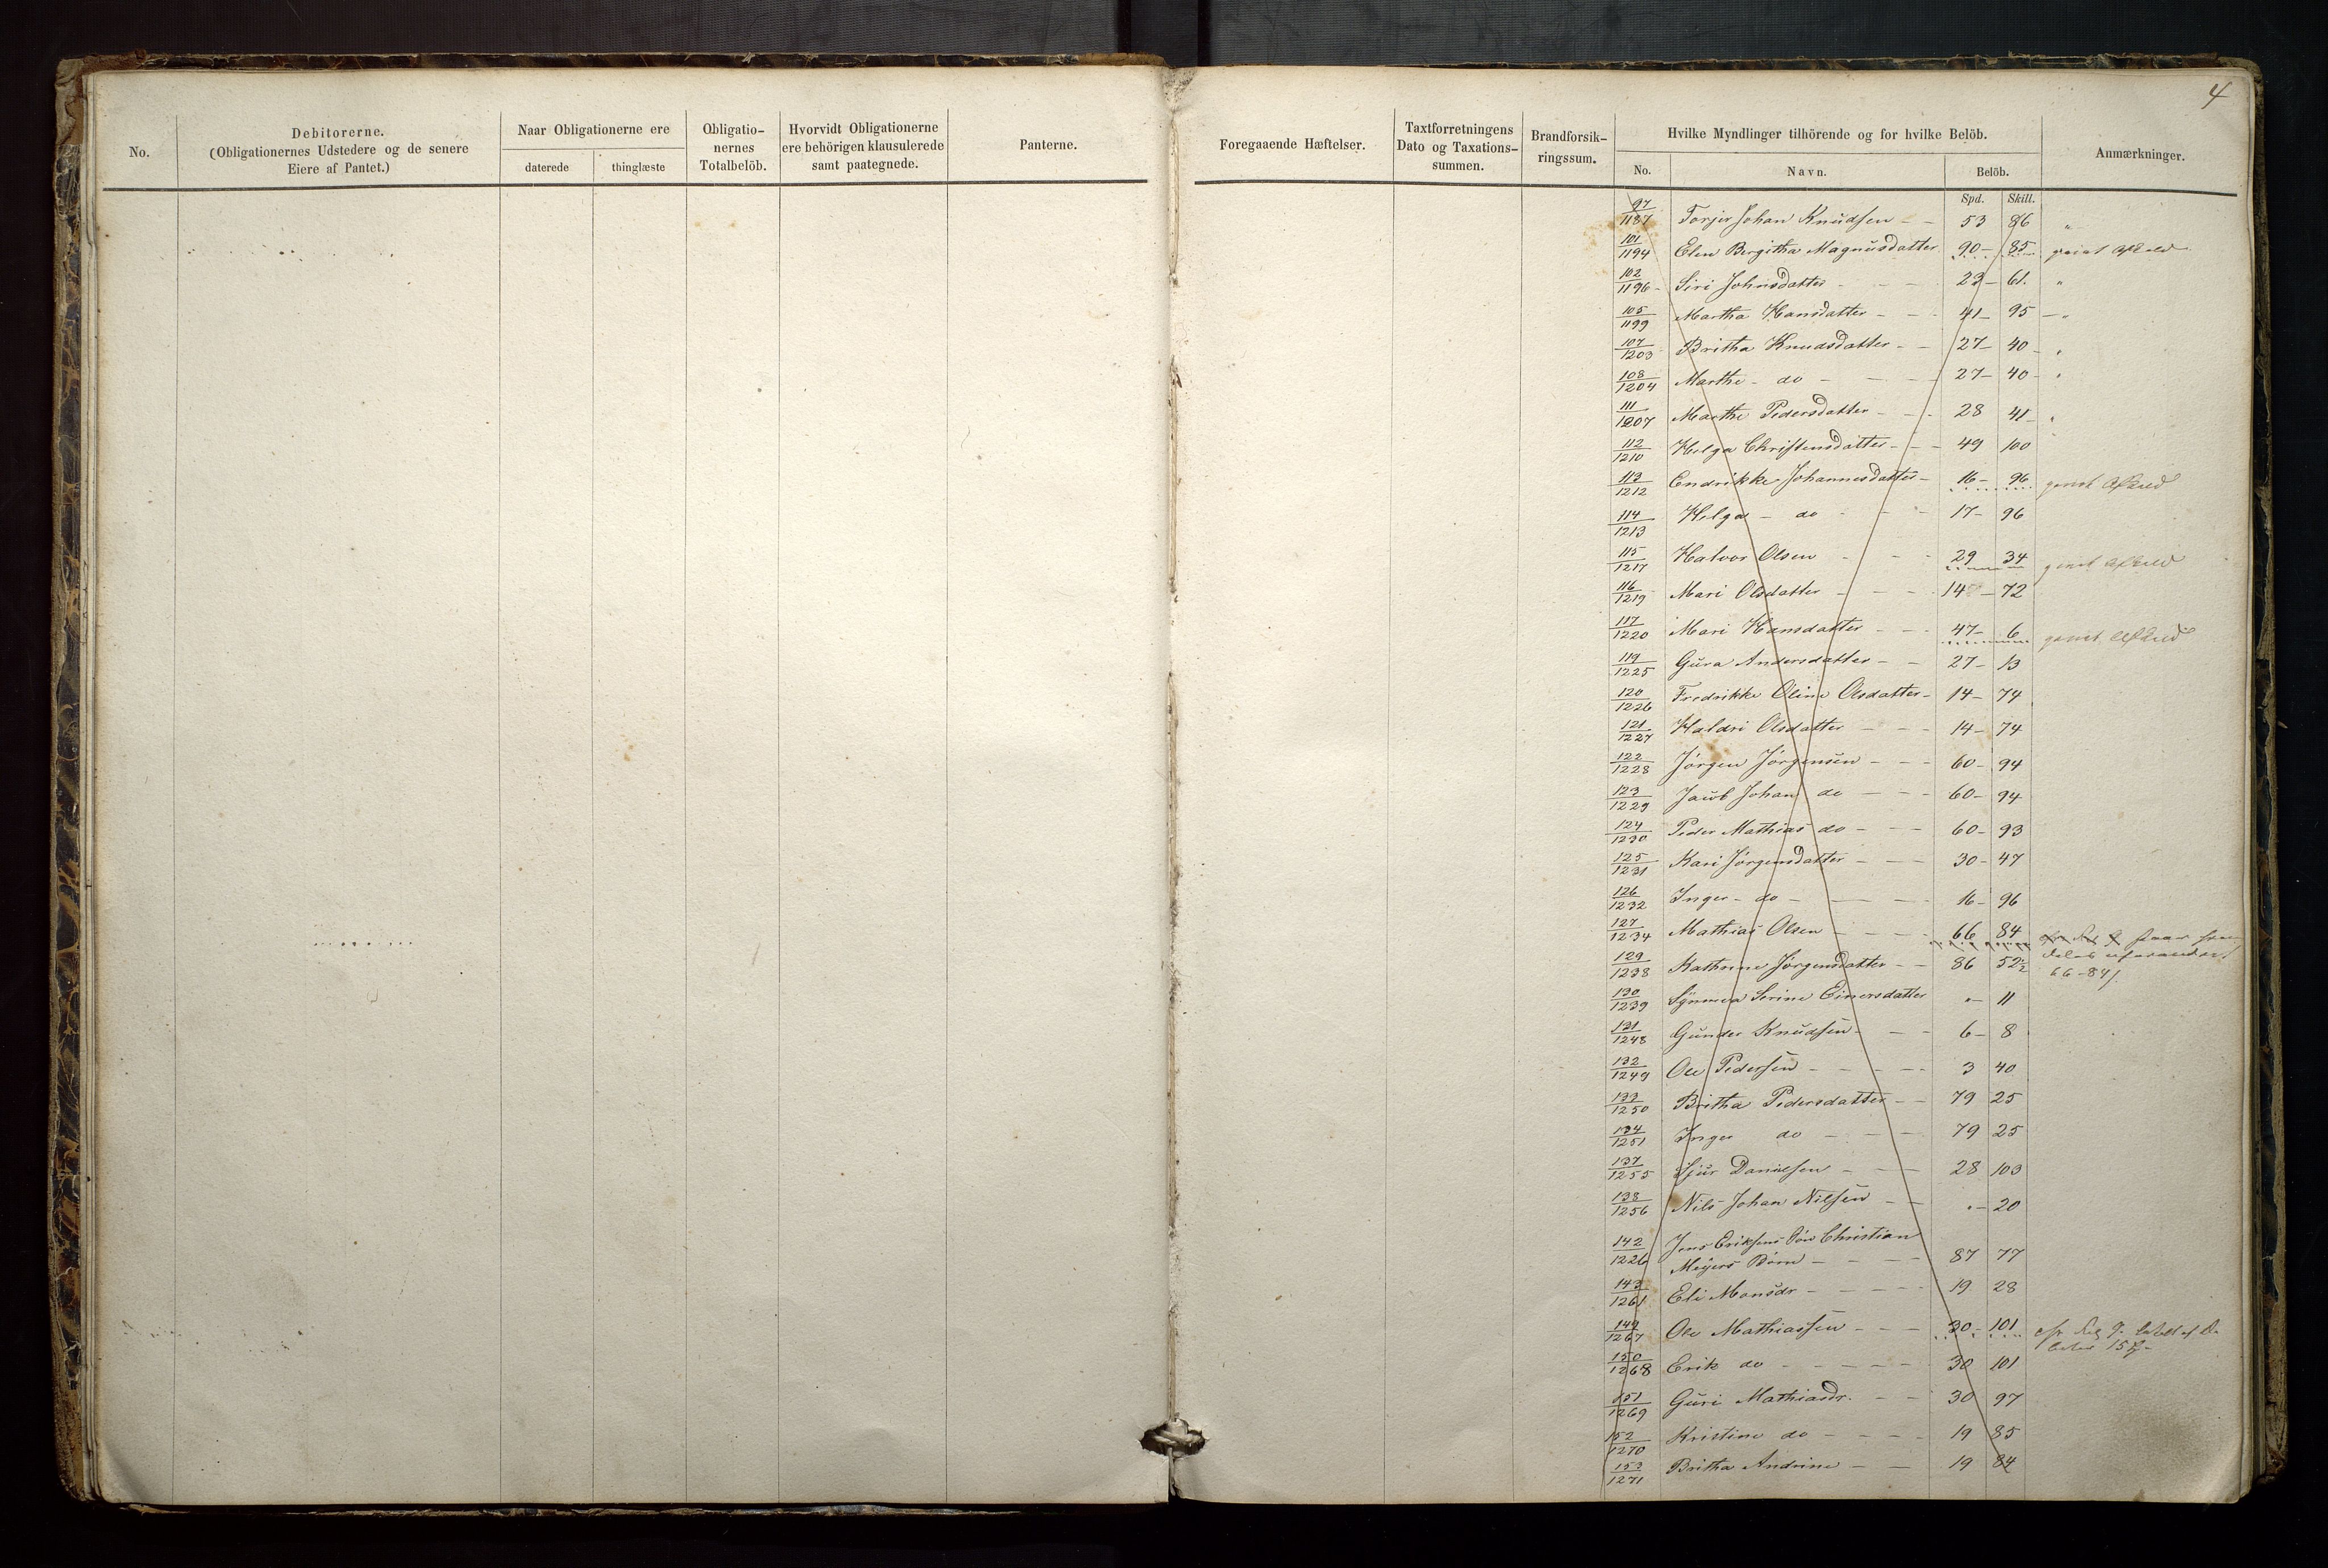 4
No.
Debitorerne.
(Obligationernes Udstedere og de senere
Eiere af Pantet.)
Naar Obligationerne ere
daterede
thinglæste
Obligatio-
nernes
Totalbelöb.
Hvorvidt Obligationerne
ere behörigen klausulerede
samt paategnede.
Panterne.
Foregaaende Hæftelser.
Taxtforretningens
Dato og Taxations-
summen.
Brandforsik-
ringssum.
Hvilke Myndlinger tilhörende og for hvilke Belöb.
No.
Navn.
Belöb.
Anmærkninger.
Spd. Skill.
97/1187 Torjer Johan Knudsen - 53 86 "
101/1194 Elen Bergitha Magnusdatter 90 - 85
102/1196 - Siri Johnsdatter - 23 - 61. "
105/1199 Martha Hansdatter - 41 - 95 - "
107/1203 Britha Knudsdatter - 27 - 40 - "
108/1204 Marthe - do - 27 - 40 - "
111/1207 Marthe Pedersdatter - 28 41 - "
112/1210 Helga Christensdatter - 49 100
113/1212 Endrikke Johannesdatter - 16 - 96
114/1213 Helga - do - 17 - 96
115/1217 Halvor Olsen - 29 34
116/1219 Mari Olsdatter - 14 - 72
117/1220 Mari Hansdatter - 47 - 6
119/1225 Gura Andersdatter - 27 - 13
120/1226 Fredrikke Oline Olsdatter - 14 - 74
121/1227 Haldri Olsdatter - 14 - 74
122/1228 Jörgen Jörgensen - 60 - 94
123/1229 Jacob Johan do - 60 - 94
124/1230 Peder Mathias do - 60 - 93
125/1231 Kari Jörgensdatter - 30 - 47
126/1232 Inger - do - 16 - 96
127/1234 Mathias Olsen - 66 84
129/1238 Kathrine Jörgensdatter - 86 52½
66-84/.
130/1239 Synneva Serine Einersdatter " - 11
131/1248 Gunder Knudsen - 6 - 8
132/1249 Ole Pedersen - 3 40
133/1250 Britha Pedersdatter - 79 25
134/1251 Inger do - 79 25
137/1255 Sjur Danielsen - 28 103
138/1256 Nils Johan Nilsen - " - 20
142/1226 Jens Eriksens Sön Christian
Meyers Börn - 87 77
143/1261 Eli Monsdr - 19 28
149/1267 Ole Mathiassen - 30 - 101
150/1268 Erik do - 30 101
151/1269 Guri Mathiasdr. - 30 97
152/1270 Kristine do - 19 85
153/1271 Britha Andrine - 19 84